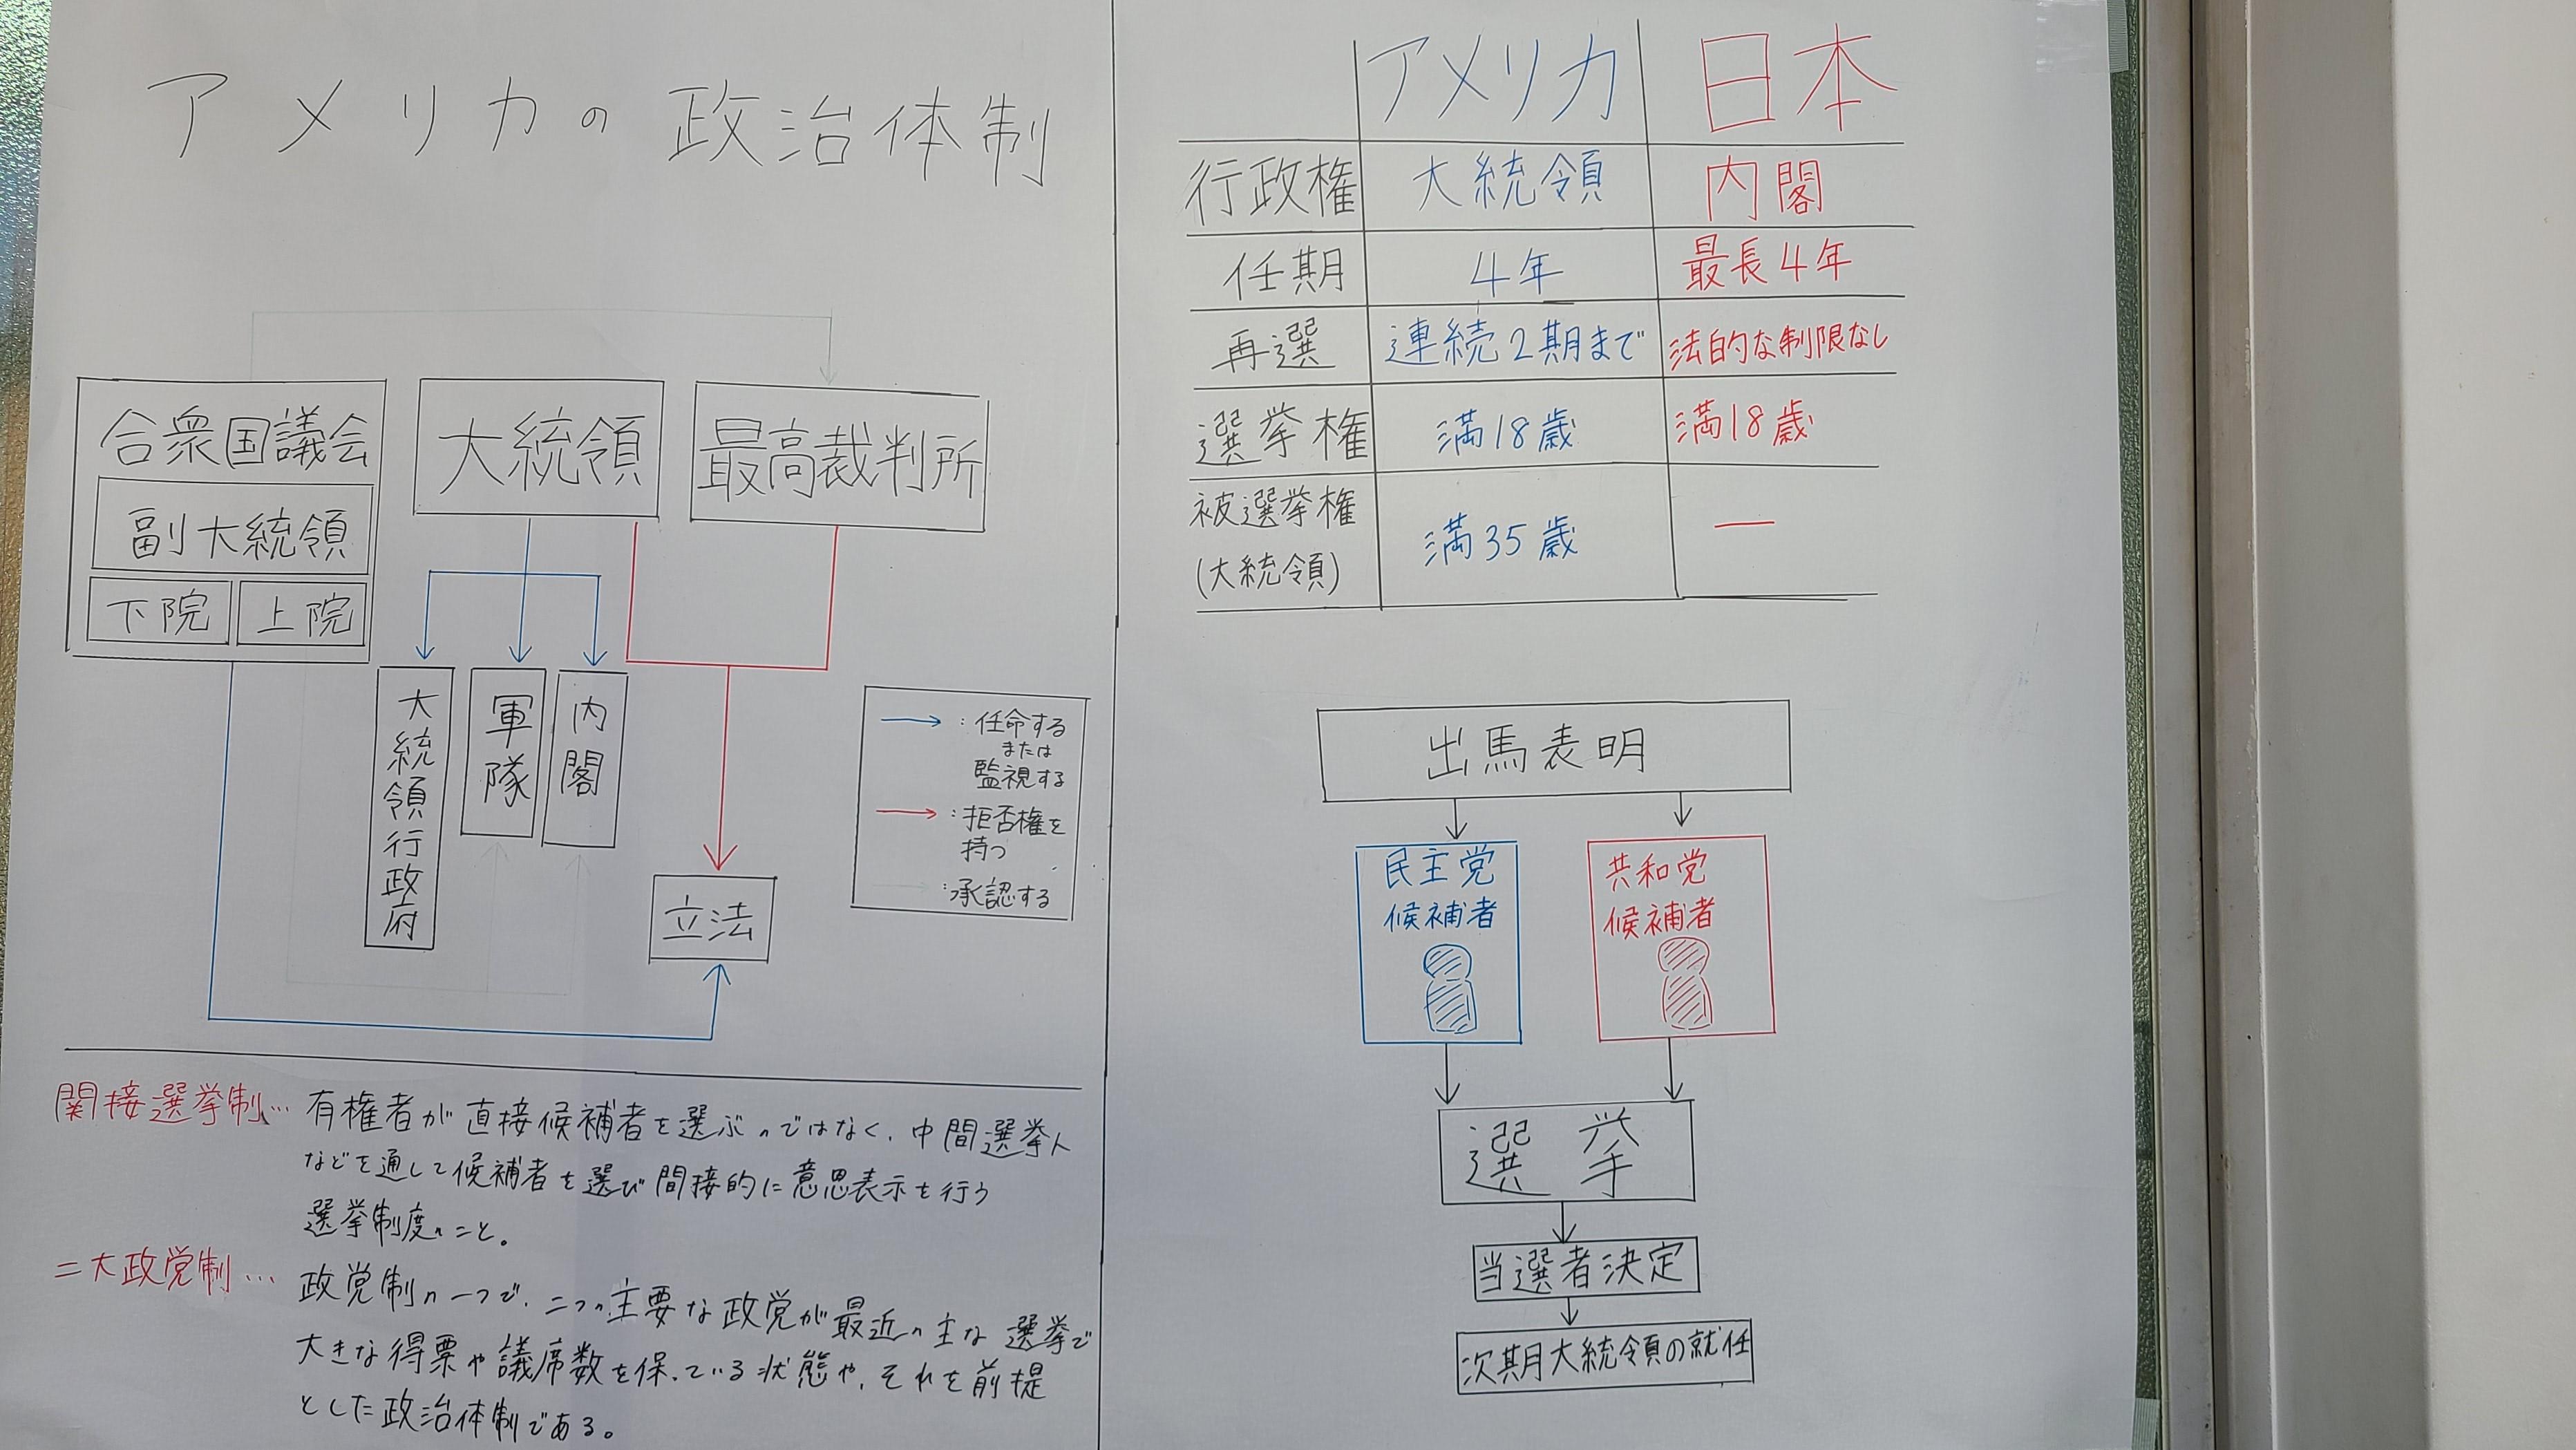 アメリカの政治体制
合衆国議会
副大統領
下院
上院
大統領
最高裁判所
大統領行政府
軍隊
内閣
立法
:任命する
または
監視する
:拒否権を
持つ
:承認する
間接選挙制…
有権者が直接候補者を選ぶのではなく、中間選挙人
などを通して候補者を選び間接的に意思表示を行う
選挙制度のこと。
二大政党制…
政党制の一つで、二つの主要な政党が最近の主な選挙で
大きな得票や議席数を保っている状態や、それを前提
とした政治体制である。
アメリカ 日本
行政権 大統領 内閣
任期 4年 最長4年
再選 連続2期まで 法的な制限なし
選挙権 満18歳 満18歳
被選挙権
(大統領) 満35歳 ―
出馬表明
民主党
候補者
共和党
候補者
選挙
当選者決定
次期大統領の就任